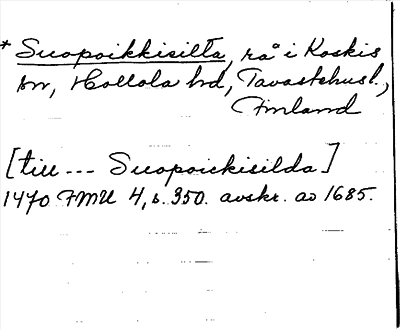 * Suopoikkisilta, rå i Koskis
sn, Hollola hd, Tavastehusl.,
Finland
[till --- Suopoickisilda]
1470 FMU 4, s. 350. avskr. av 1685.